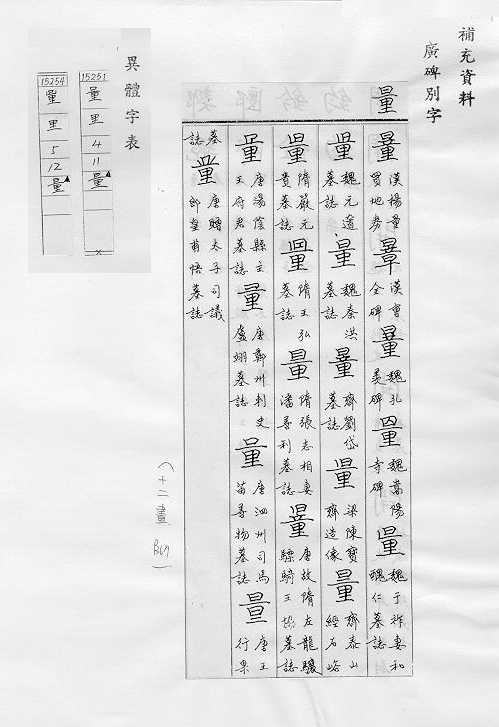 補充資料
廣碑別字
量
量 漢楊量買地券 量 漢曹全碑 量 魏孔羨碑 量 魏嵩陽寺碑 量 魏于祚妻和醜仁墓誌
量 魏元道墓誌 量 魏秦洪墓誌 量 齊劉岱墓誌 量 梁陳寶齊造像 量 齊泰山經石峪
量 隋嚴元貴墓誌 量 隋王弘墓誌 量 隋張志相妻潘善利墓誌 量 唐故隋左龍驤驃騎王 墓誌
量 唐湯陰縣主王府君墓誌 量 唐鄭州刺史盧翊墓誌 量 唐泗州司馬苗善物墓誌 量 唐王行果
墓誌 量 唐贈太子司議郎皇甫悟墓誌
(十二畫
異體字表
15251 量 里 4 11 量
15254 量 里 5 12 量